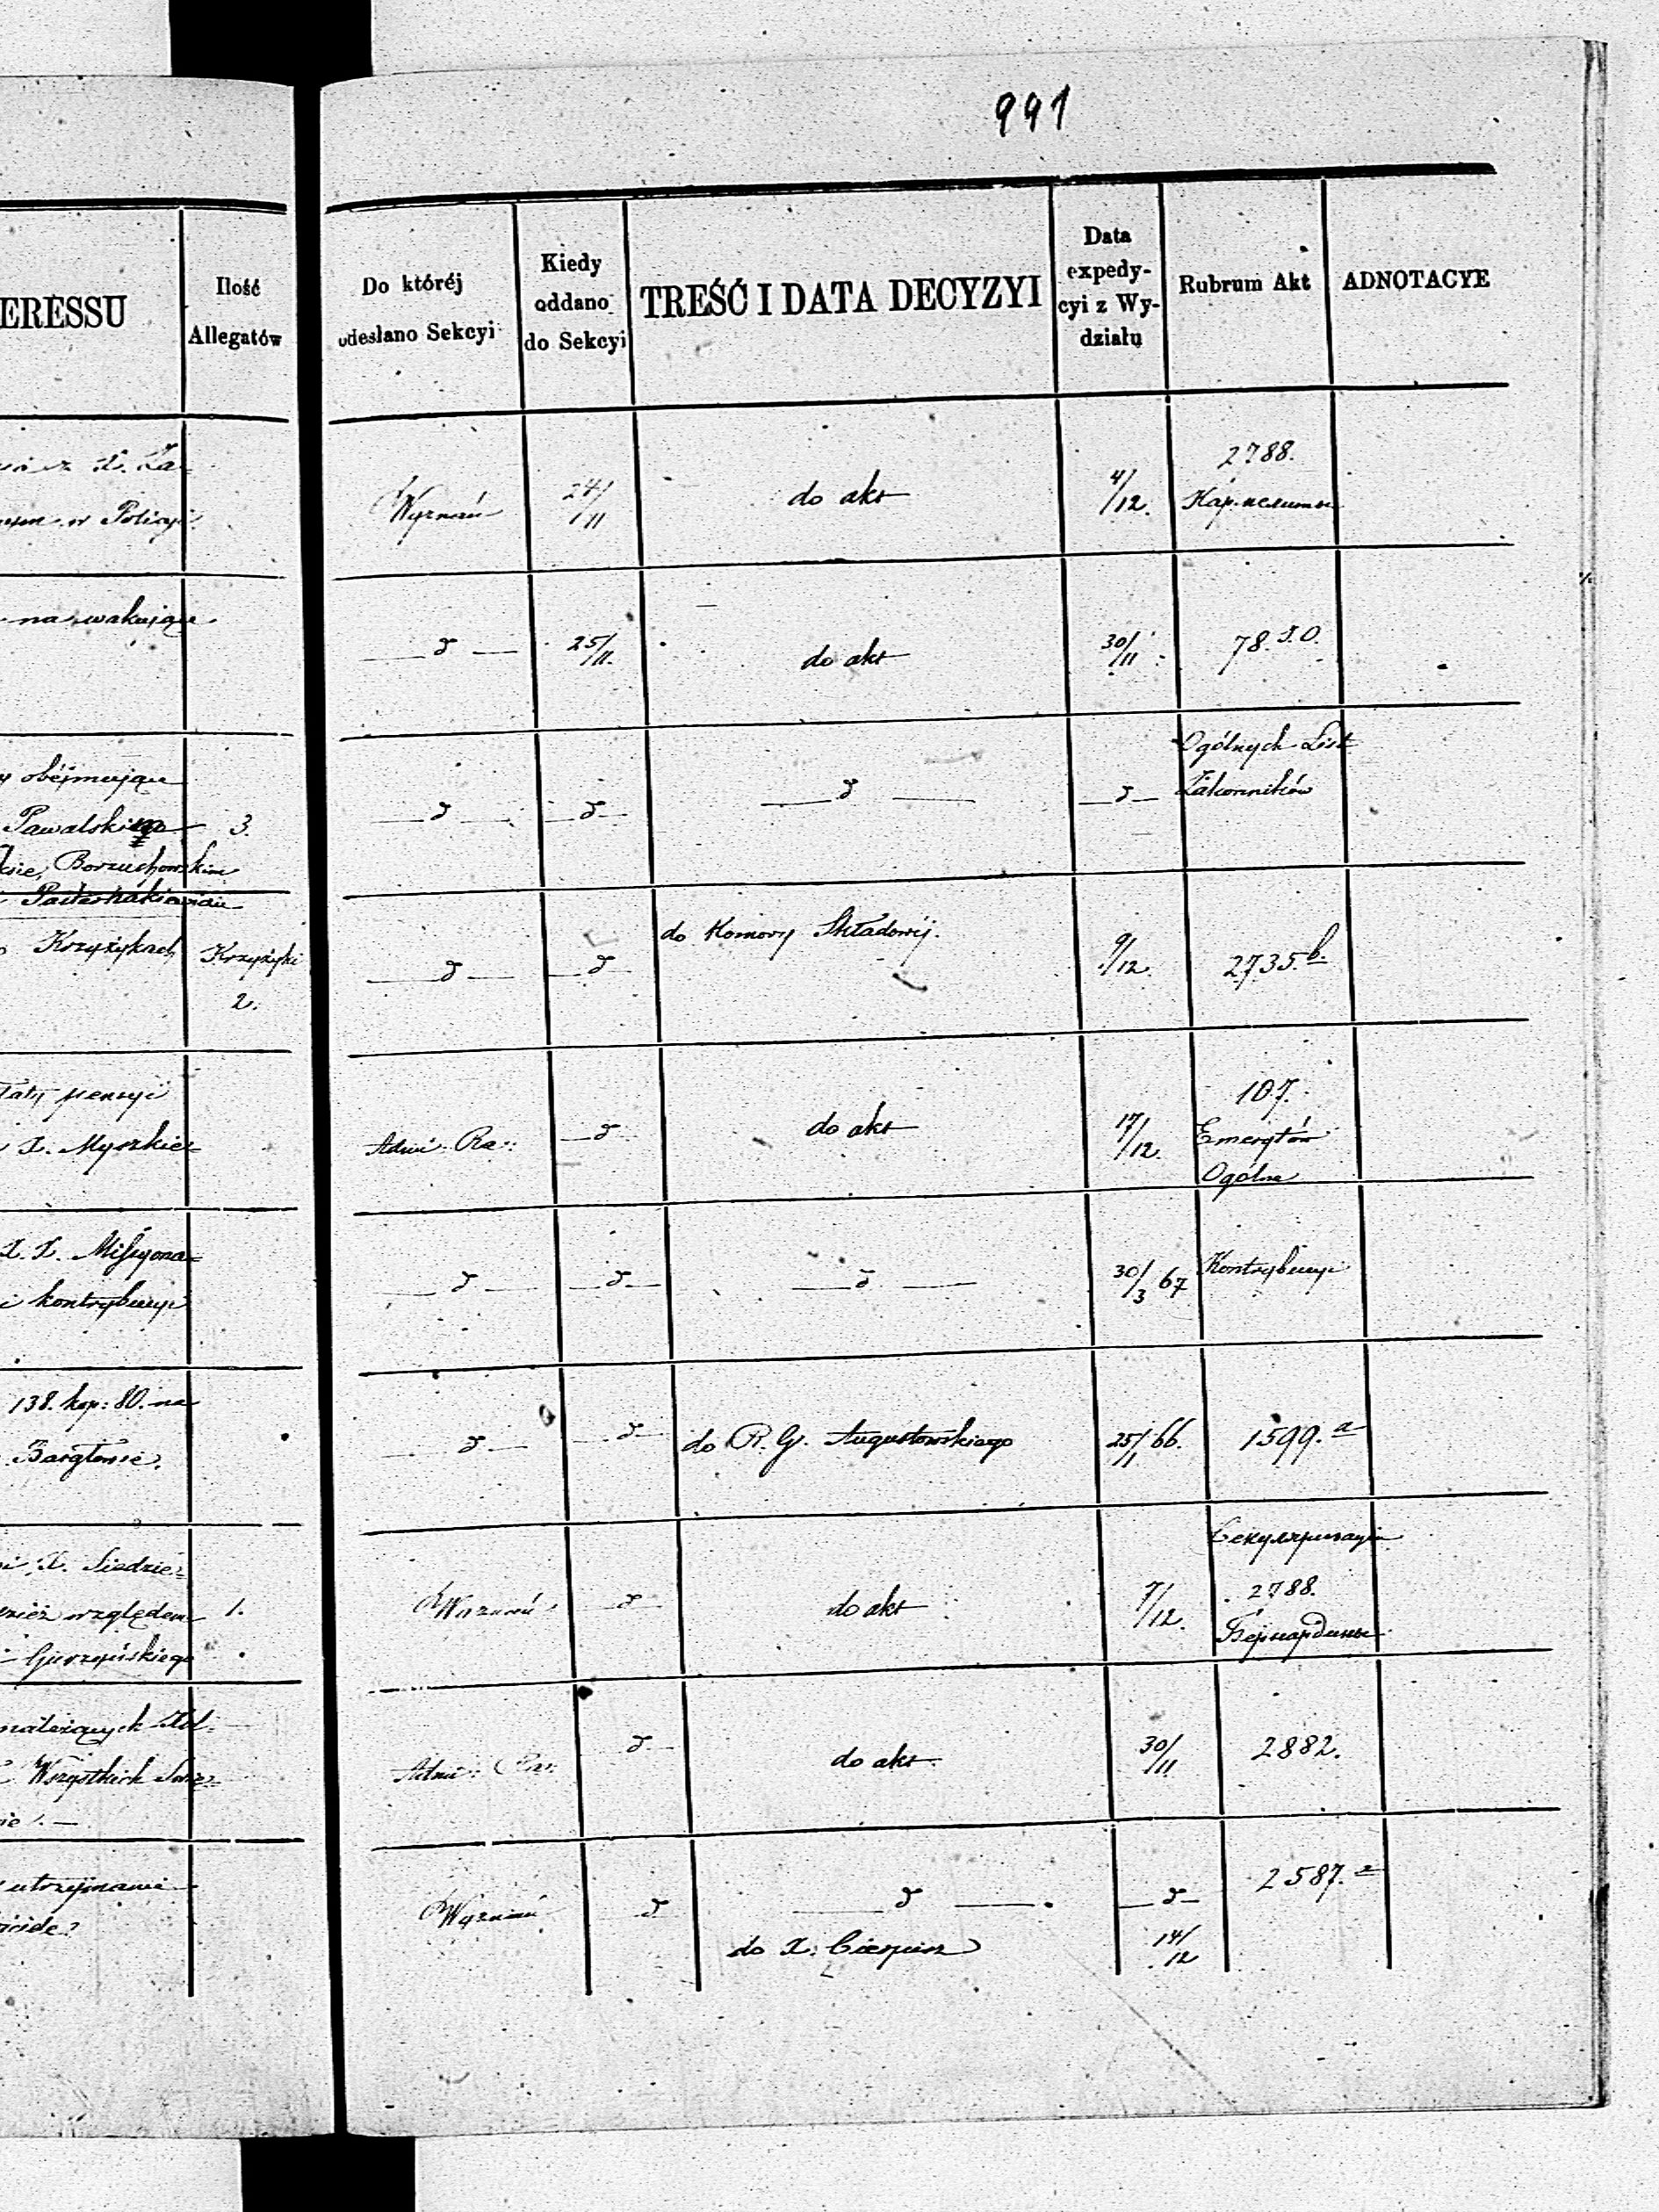 991
ERESSU
Ilość
Allegatów
Do któréj
odesłano Sekcyi
Kiedy
oddano
do Sekcyi
TREŚĆ I DATA DECYZYI
Data
expedy-
cyi z Wy-
działu
Rubrum Akt
ADNOTACYE
z X. Za=
w Policyi
Wyznań
24/11
do akt
4/12.
2788.
Кармелиты
na wakujące
d
25/11.
do akt
30/11
78. J.O.
obéjmujące
Pawalskiego
3.
Borzuchowskim
d
d
d
d
Ogólnych List
Zakonników
Krzyżykach
Krzyżyki
2.
d
d
do Komory Składowéj.
9/12.
2735. b.
pensyi
X. Myszkie=
Admi: Ra:
d
do akt
17/12.
107.
Emerytów
Ogólne
X. X. Missyona=
i kontrybucyi
d
d
d
30/3 67
Kontrybucyi
138. kop: 80. na
Bargłowie.
d
d
do R. G. Augustowskiego
25/11 66.
1599. a
X. Siedzie=
względem
1.
Wyznań
d
do akt
7/12.
Секуляризация
2788.
Бернардины
należących
Wszystkich
Admi: Ra:
d
do akt.
30/11
2882.
utrzymanie
Wyznań
d
d
d
2587. a
do X:
14/12